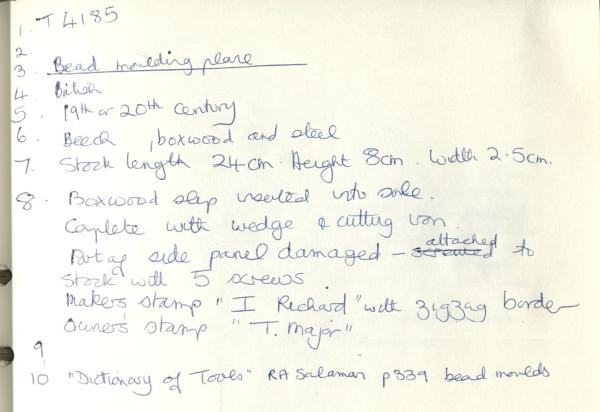 1. T 4185
2.
3. Bead moulding plane
4. British
5. 19th or 20th century
6. Beech, boxwood and steel
7. Stock length 24cm. Height 8cm. Width 2.5cm.
8. Boxwood slip inserted into sole.
Complete with wedge & cutting iron
Part of side panel damaged – attached to
stock with 5 screws
Makers stamp "I Richard" with zigzag border
Owner's stamp "T. Major"
9
10 "Dictionary of Tools" RA Salaman p339 bead moulds